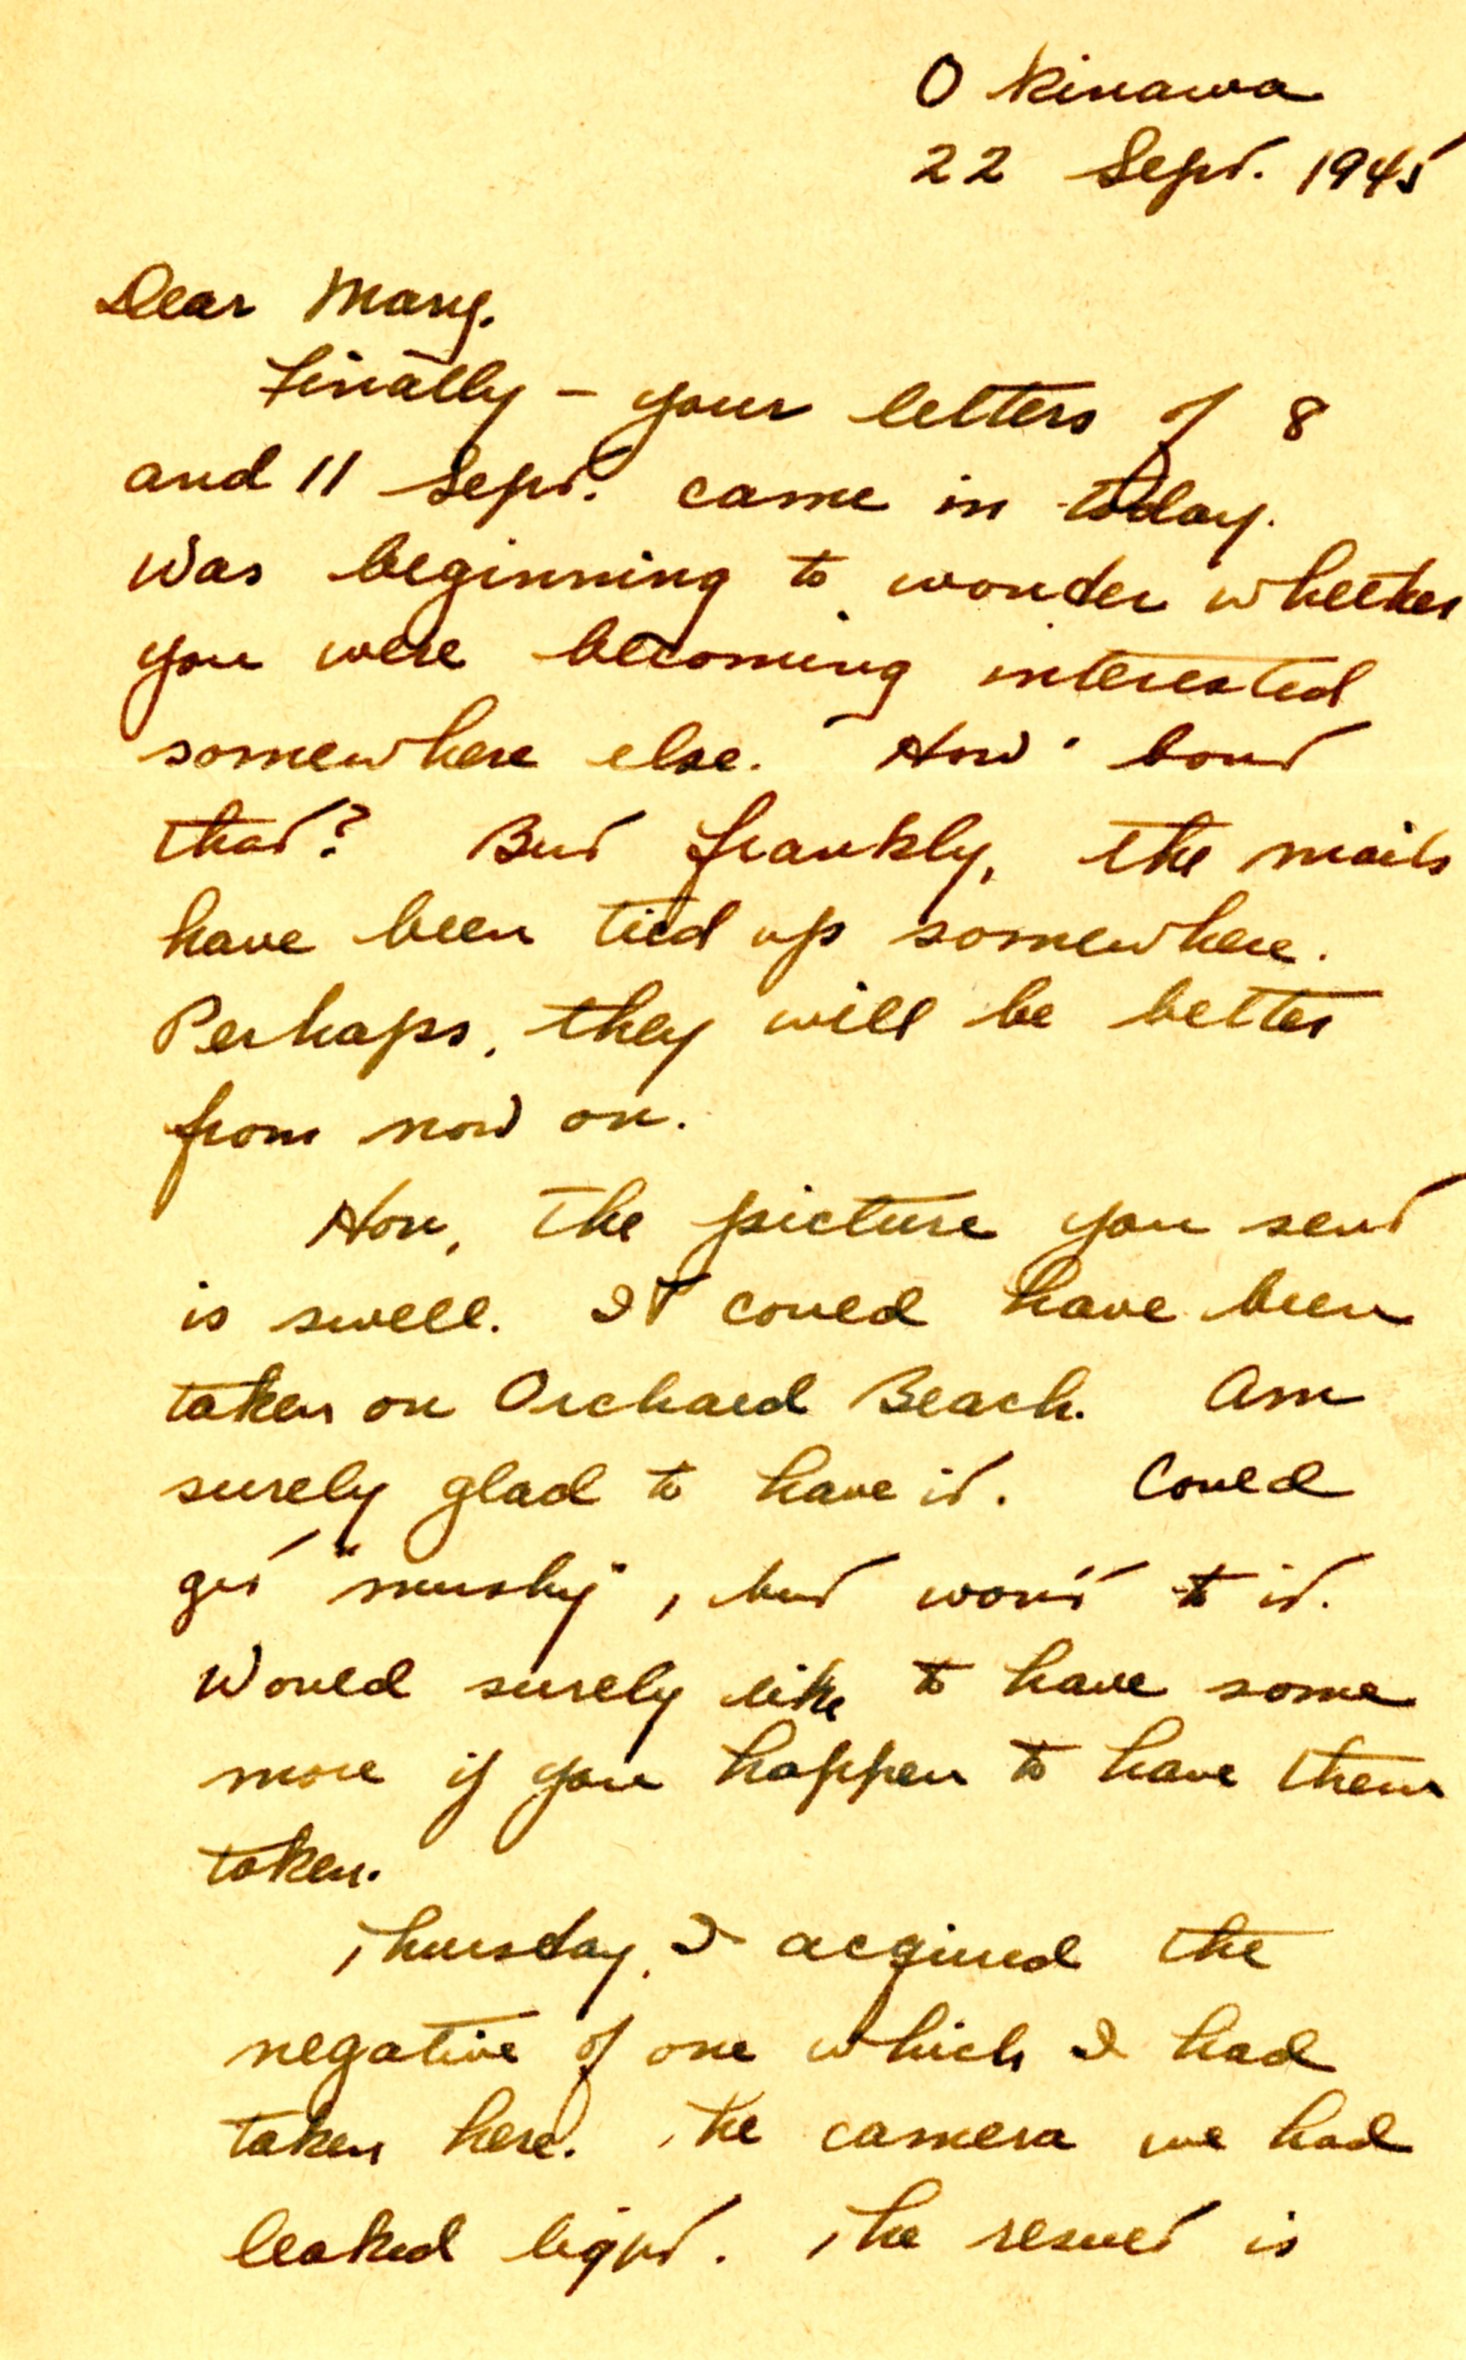 Okinawa
22 Sept. 1945
Dear Mary.
Finally - your letters of 8
and 11 Sept. came in today.
Was beginning to wonder whether
you were becoming interested
somewhere else. How 'bout
that? But frankly, the mails
have been tied up somewhere.
Perhaps, they will be better
from now on.
Hon, the picture you sent
is swell. It could have been
taken on Orchard Beach. Am
surely glad to have it. Could
get "mushy", but won't to it.
Would surely like to have some
more if you happen to have them
taken.
Thursday, I acquired the
negative of one which I had
taken here. The camera we had
leaked light. The result is